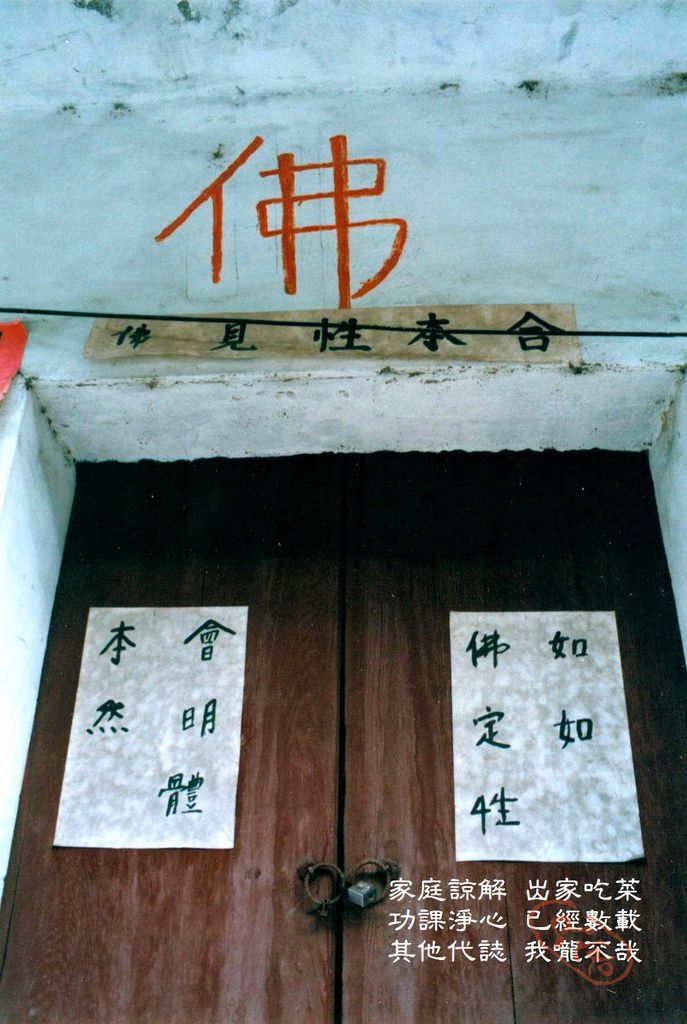 佛
合本性見佛
如如
佛定性
會明體
本然
家庭諒解 出家吃菜
功課淨心 已經數載
其他代誌 我嚨不哉